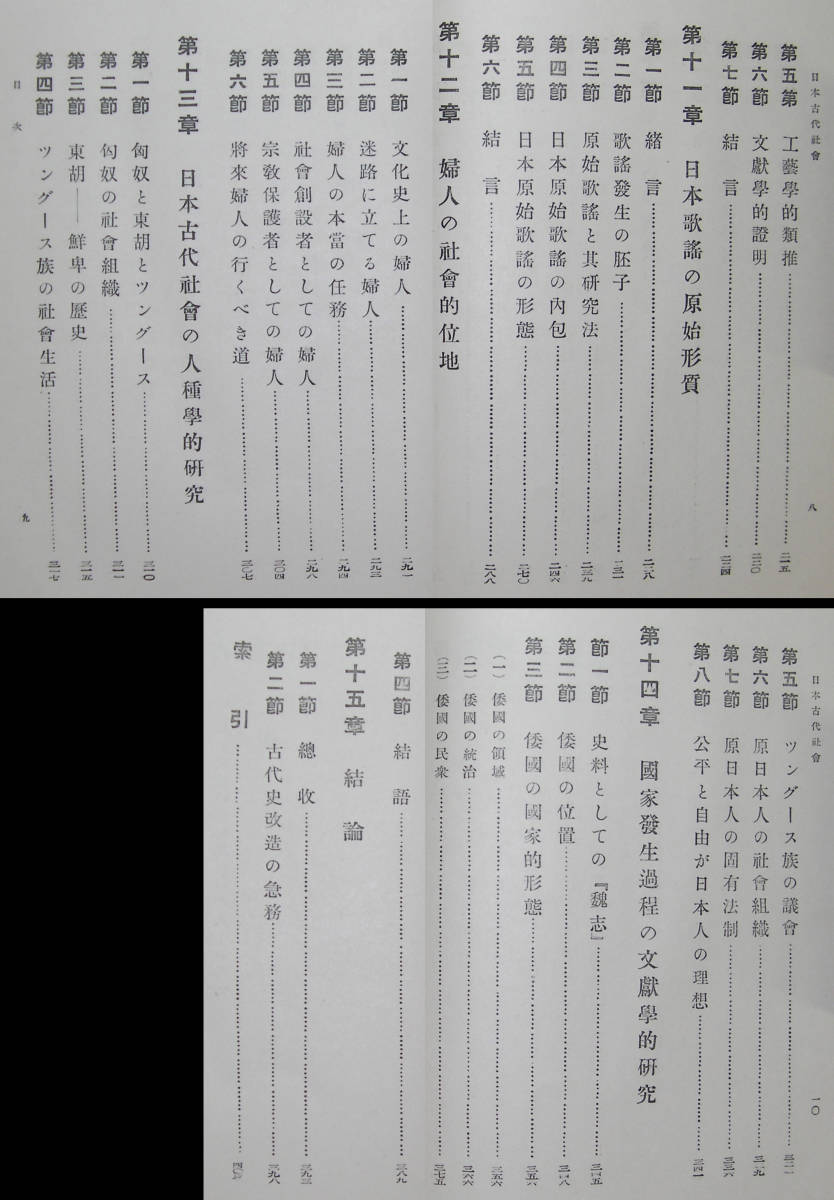 日本古代社會
第五第 工藝學的類推 二一五
第六節 文獻學的證明 二二〇
第七節 結言 二二四
第十一章 日本歌謠の原始形質
第一節 緒言 二二八
第二節 歌謠發生の胚子 二三一
第三節 原始歌謠と其研究法 二三九
第四節 日本原始歌謠の內包 二四六
第五節 日本原始歌謠の形態 二七〇
第六節 結言 二八八
第十二章 婦人の社會的位地
八
第一節 文化史上の婦人 二九一
第二節 迷路に立てる婦人 二九三
第三節 婦人の本當の任務 二九四
第四節 社會創設者としての婦人 二九八
第五節 宗敎保護者としての婦人 三〇四
第六節 將來婦人の行くべき道 三〇七
第十三章 日本古代社會の人種學的硏究
第一節 匈奴と東胡とツングース 三一〇
第二節 匈奴の社會組織 三一一
第三節 東胡——鮮卑の歷史 三一五
第四節 ツングース族の社會生活 三一七
目次
九
日本古代社會
第五節 ツングース族の議會
第六節 原日本人の社會組織 三二九
第七節 原日本人の固有法制 三三六
第八節 公平と自由が日本人の理想 三四一
第十四章 國家發生過程の文獻學的硏究
節一節 史料としての『魏志』 三四五
第二節 倭國の位置 三四八
第三節 倭國の國家的形態 三五六
(一) 倭國の領域 三五六
(二) 倭國の統治 三六六
(三) 倭國の民衆 三七五
一〇
第四節 結語 三八九
第十五章 結論
第一節 總收 三九三
第二節 古代史改造の急務 三九八
索引